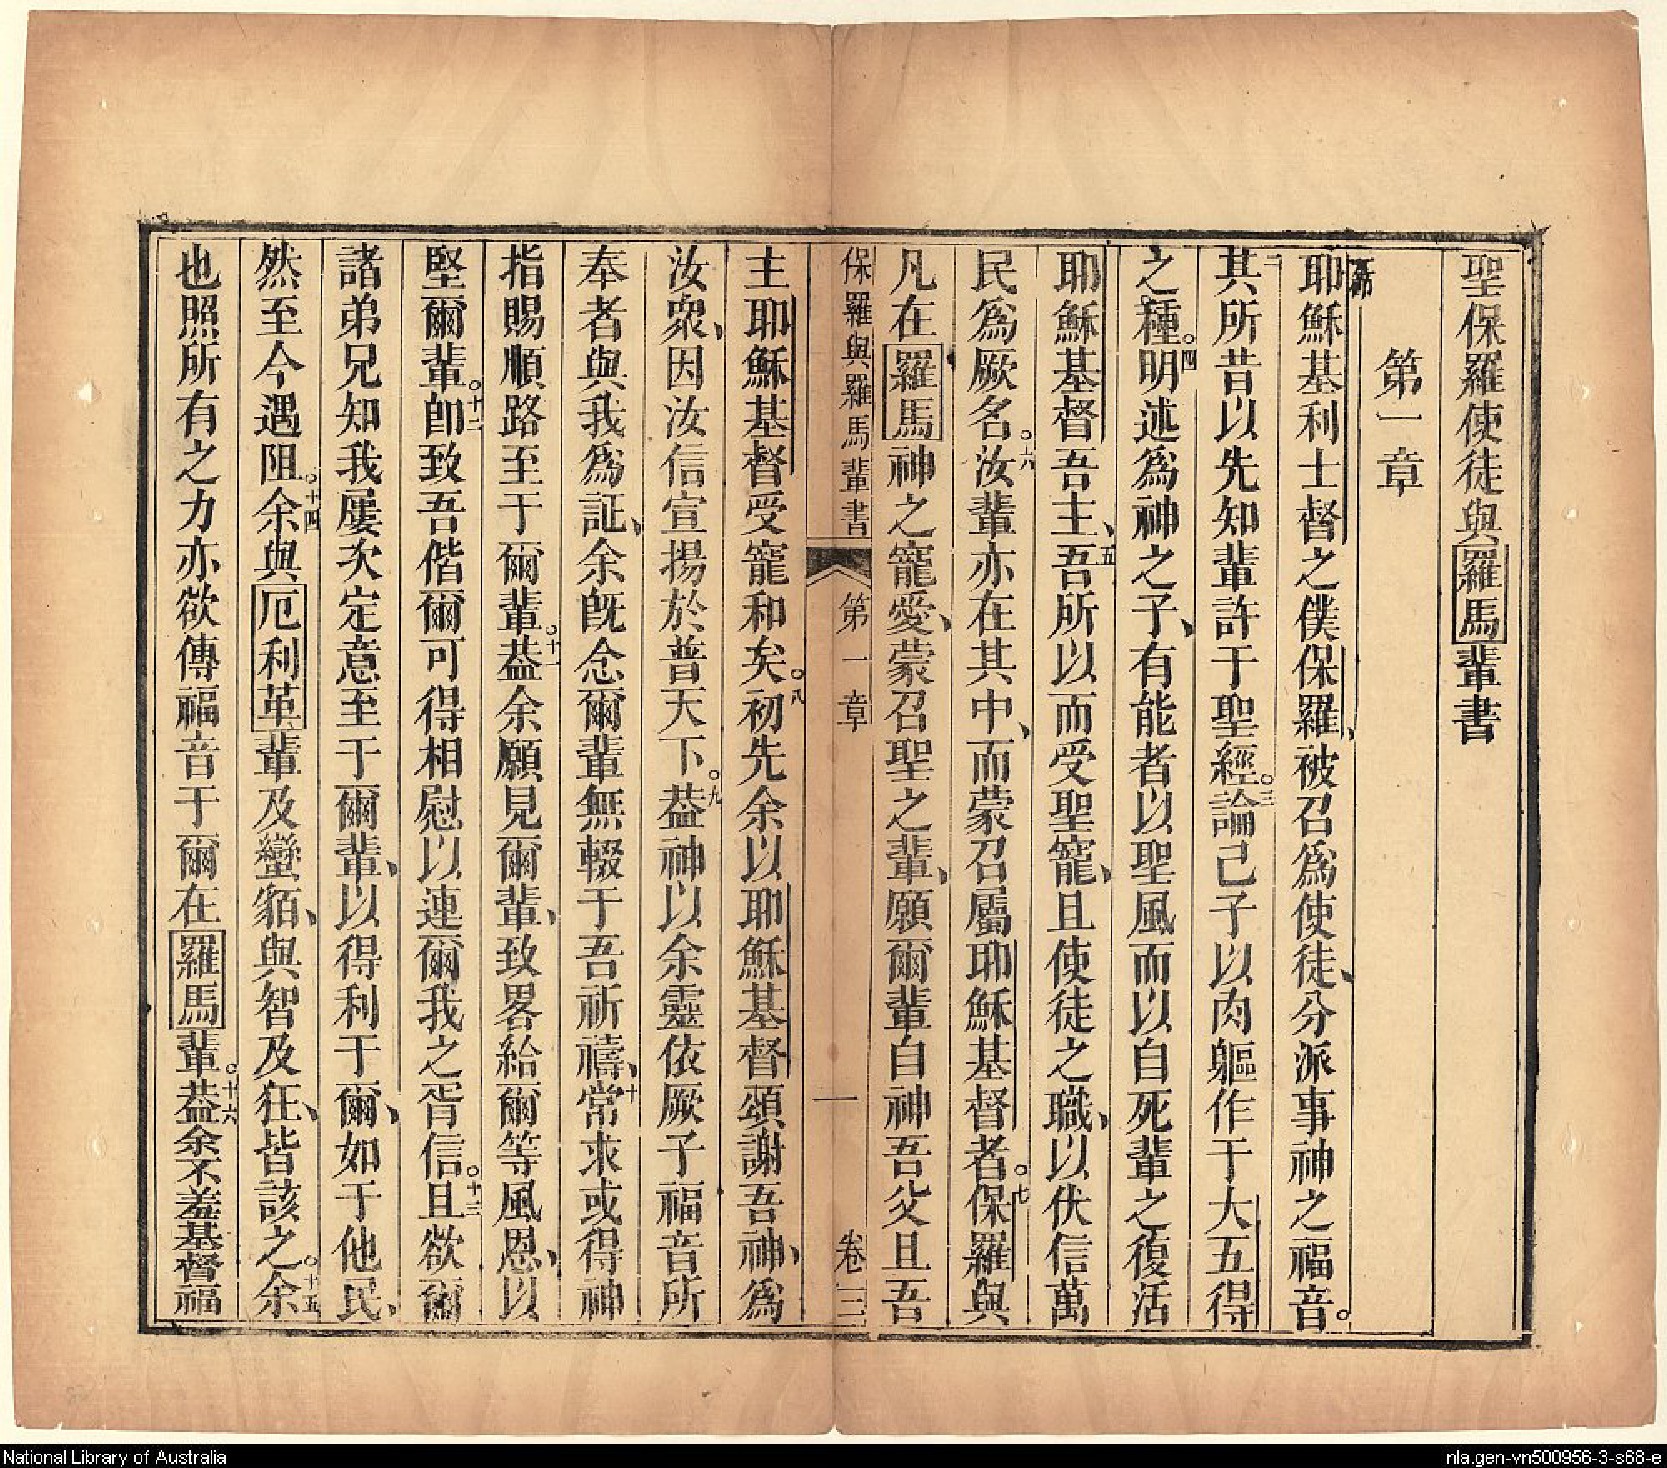 聖保羅使徒與羅馬輩書
第一章
第一節
耶穌基利士督之僕保羅、被召爲使徒、分派事神之福音。
二其所昔以先知輩許于聖經。三論己子以肉軀作于大五得
之種。四明述爲神之子、有能者以聖風而以自死輩之復活
耶穌基督吾主、五吾所以而受聖寵、且使徒之職、以伏信萬
民爲厥名。六汝輩亦在其中、而蒙召屬耶穌基督者。七保羅與
凡在羅馬神之寵愛、蒙召聖之輩、願爾輩自神吾父且吾
保羅與羅馬輩書 第一章 一 卷三
主耶穌基督受寵和矣。八初先余以耶穌基督頌謝吾神、爲
汝衆、因汝信宣揚於普天下。九葢神以余靈依厥子福音所
奉者與我爲証、余旣念爾輩無輟于吾祈禱、十常求或得神
指賜順路至于爾輩。十一葢余願見爾輩、致畧給爾等風恩、以
堅爾輩。十二卽致吾偕爾可得相慰以連爾我之胥信。十三且欲爾
諸弟兄知我屢次定意至于爾輩、以得利于爾、如于他民、
然至今遇阻。十四余與厄利革輩及蠻貊、與智及狂、皆該之。十五余
也照所有之力亦欲傳福音于爾在羅馬輩。十六葢余不羞基督福
National Library of Australia
nla.gen-vn500956-3-s68-e